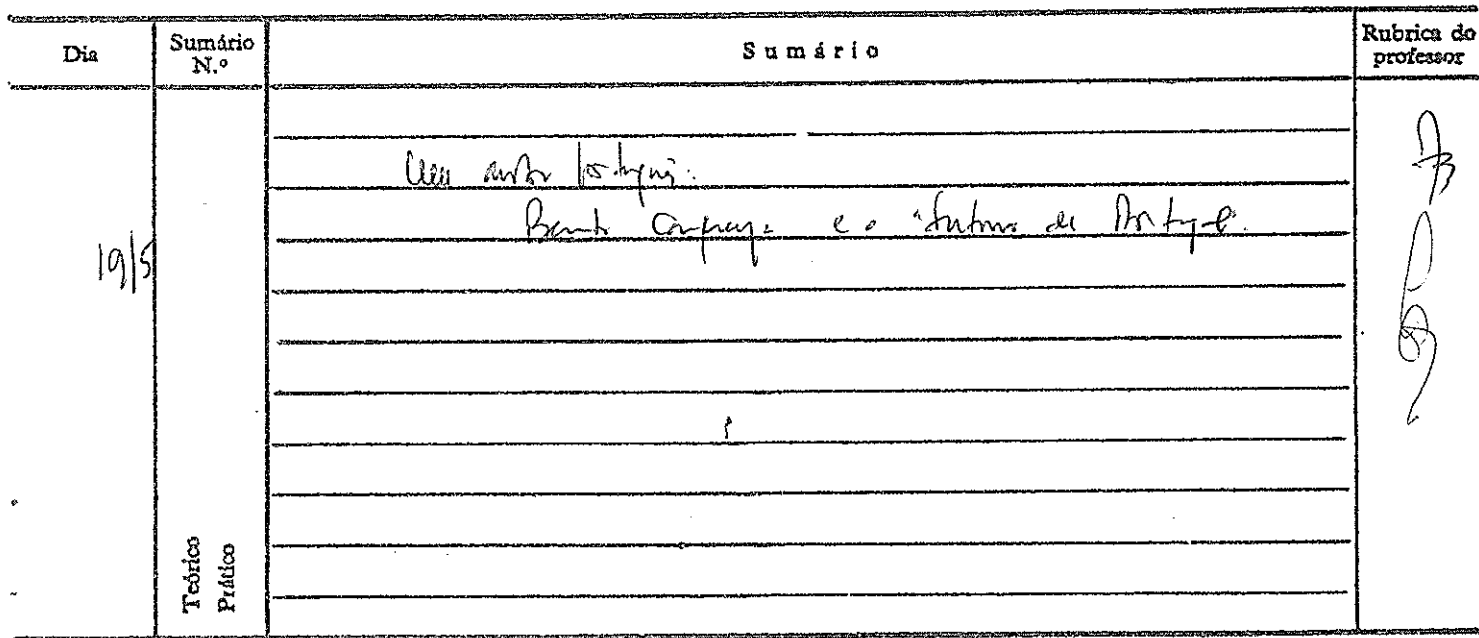 Dia
Sumário N.º
Sumário
Rubrica do professor
Um autor português.
e o "futuro de Portugal".
19/5
Teórico
Prático